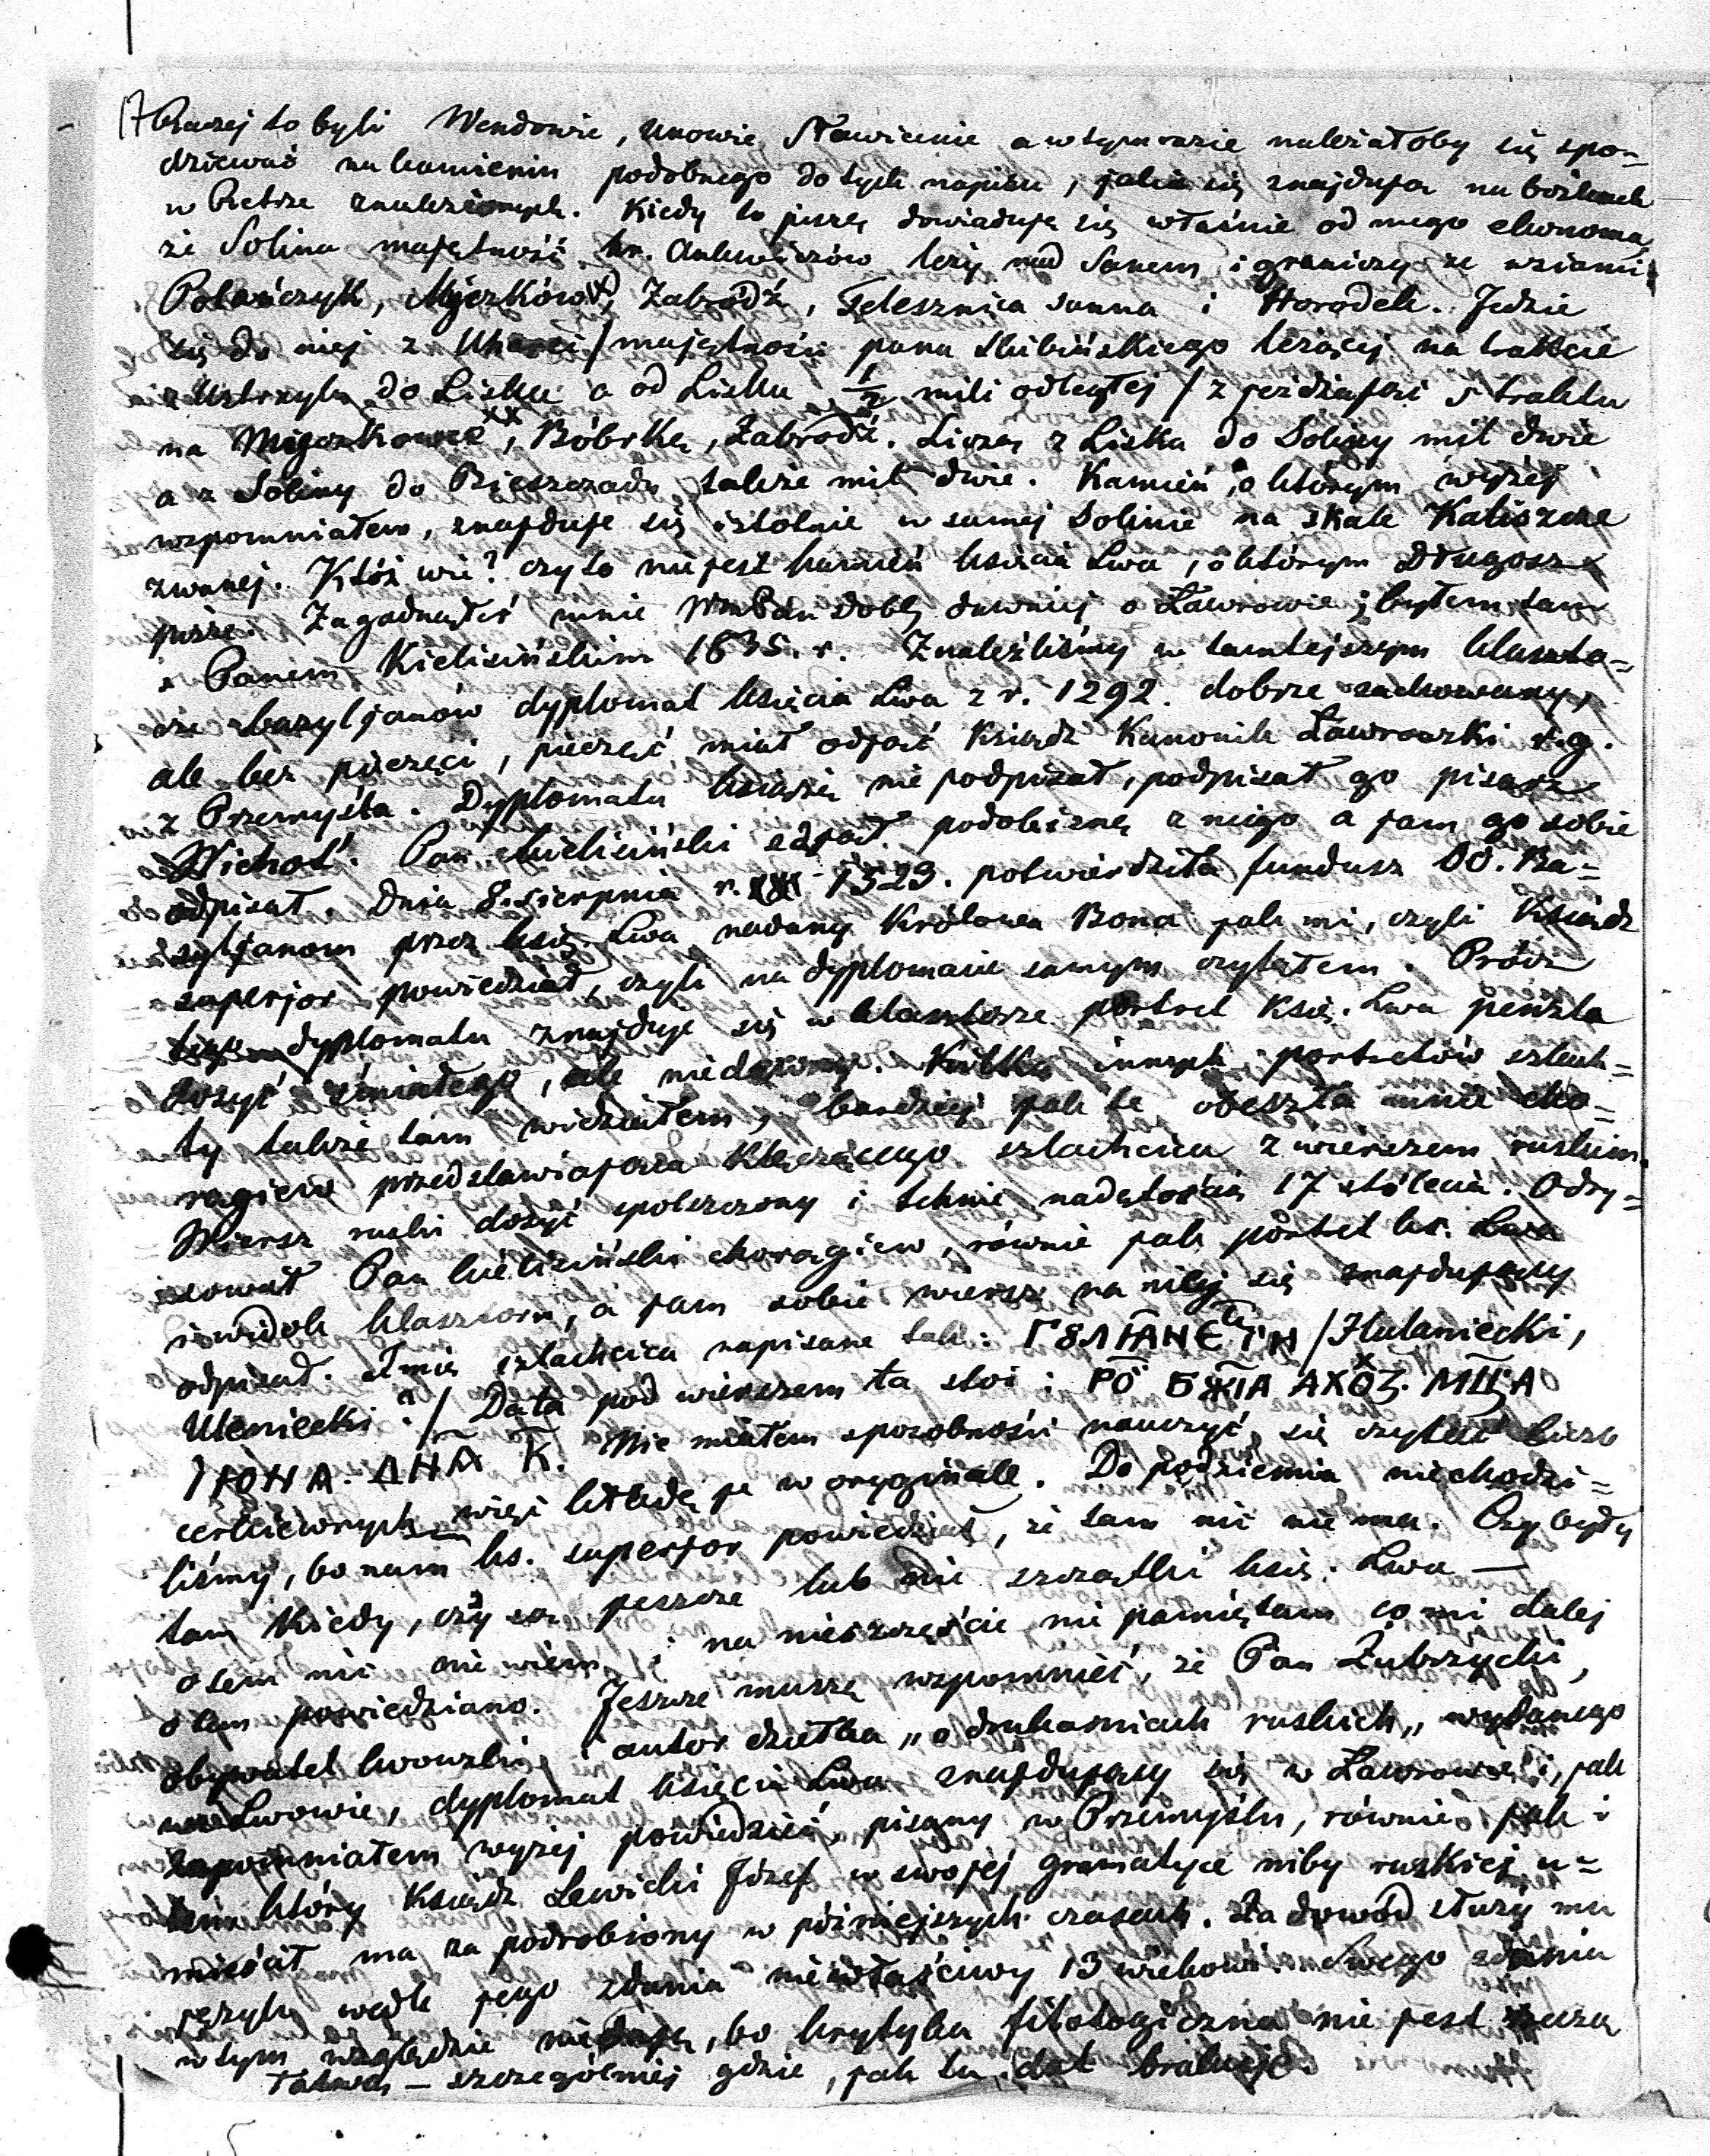 17 Raczej to byli Wendowie, Unowie, Sławianie a w tym razie należałoby się spo-
dziewać na kamieniu podobnego do tych napisu, jakie się znajdują na bożkach
w Retrze znalezionych. Kiedy to piszę dowiaduję się właśnie od mego ekonoma,
że Solina majętność hr. Ankwiczów leży nad Sanem i graniczy ze wsiami
Polańczyk, Myczków, Zabrodź, Telesznica sanna i Horodek. Jedzie
się do niej z Uherci / majętności pana Skibińskiego leżącej na trakcie
z Ustrzyk do Liska a od Liska ½ mili odległej / zjeżdżając z traktu
na Myczkowce xx, Bóbrkę, Zabrodź. Liczą z Liska do Soliny mil dwie
a z Soliny do Bieszczadu także mil dwie. Kamień, o którym wyżej
wspomniałem, znajduje się istotnie w samej Solinie na skale Kaliszcze
zwanej. Któż wie? czy to nie jest kamień księcia Lwa, o którym Długosz
pisze. Zagadnąłeś mnie WmPan Dobr. dawniej o Ławrowie; byłem tam
z Panem Kielisińskim 1835. r. Znaleźliśmy w tamtejszym klaszto-
rze bazyljanów dyplomat księcia Lwa z r. 1292. dobrze zachowany,
ale bez pieczęci, pieczęć miał odjąć Ksiądz Kanonik Ławrowski r. g.
z Przemyśla. Dyplomatu książę nie podpisał, podpisał go pisarz
Wichoł. Pan Kielisiński zdjął podobiznę z niego a jam go sobie
odpisał. Dnia 8. sierpnia r. 1529. potwierdziła fundusz OO. Ba-
zyljanom przez księ. Lwa nadany Królowa Bona jak mi, czyli Ksiądz
superjor powiedział, czyli na dyplomacie samym czytałem. Prócz
tego dyplomatu znajduje się w klasztorze portret księ. Lwa penzla
dosyć śmiałego, ale niedawny. Kilka innych portretów szlach-
ty także tam widziałem, bardziej jak te obeszła mnie cho-
rągiew przedstawiająca klęczącego szlachcica z wierszem ruskim.
Wiersz ruski dosyć spolszczony i tchnie nadętością 17 stólecia. Odry-
sował Pan Kielisiński chorągiew, równie jak portret ks. Lwa
i widok klasztoru, a jam sobie wiersz na niej się znajdujący
odpisał. Imię szlachcica napisane tak: ГꙊЛІАНЕЦ́ІИ / Hulaniecki,
Uleniecki? / Data pod wierszem ta stoi: РО БЖІА АХОЗ. МЦА
ІЮНА. ДНА К. Nie miałem sposobności nauczyć się czytać liczb
cerkiewnych więc kładę je w oryginale. Do podziemia niechodzi-
liśmy, bo nam ks. superjor powiedział, że tam nic nie ma. Czy były
tam kiedy, czy są jeszcze lub nie szczątki księ. Lwa —
o tem nic nie wiem i na nieszczęście nie pamiętam co mi dalej
o tem powiedziano. Jeszcze muszę wspomnieć, że Pan Zubrzycki,
obywatel lwowski i autor dziełka „o drukarniach ruskich„ wydanego
we Lwowie, dyplomat księcia Lwa znajdujący się w Ławrowie i, jak
zapomniałem wyżej powiedzieć, pisany w Przemyślu, równie jak i
ten który Ksiądz Lewicki Józef w swojej gramatyce niby ruskiej u-
mieścił ma za podrobiony w późniejszych czasach. Za dowód służy mu
język wedle jego zdania niewłaściwy 13 wiekowi. Swego zdania
w tym względzie nie daję, bo krytyka filologiczna nie jest rzeczą
łatwą — szczególniej gdzie, jak tu dat brakuje.